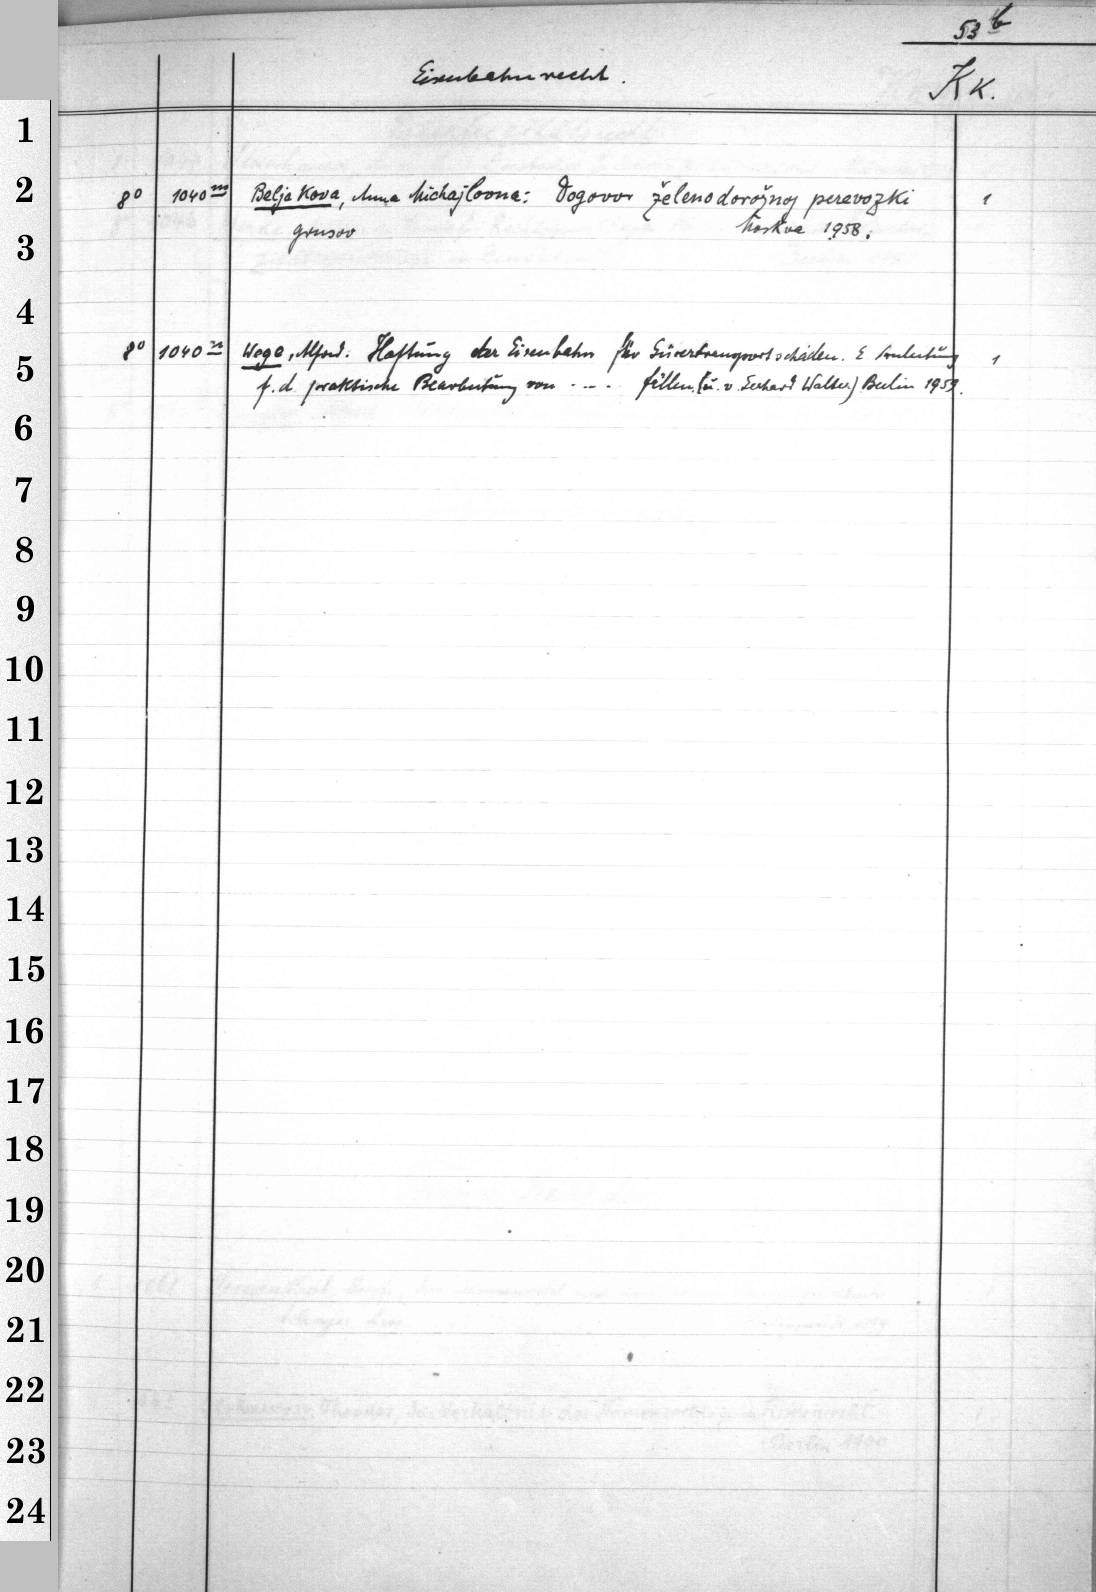 53 b
Eisenbahnrecht.
Kk.
1
2
8° 1040 m Beljakova, Anna Michajlovna: Dogovor želenodorožnoj perevozki 1
grusov Moskva 1958.
3
4
8° 1040 n Wege, Alfred. Haftung der Eisenbahn für Gütertransportschäden. E Anleitung 1
5
f. d. praktische Bearbeitung von .... fällen. (u. v. Gerhard Walter) Berlin 1959.
6
7
8
9
10
11
12
13
14
15
16
17
18
19
20
21
22
23
24